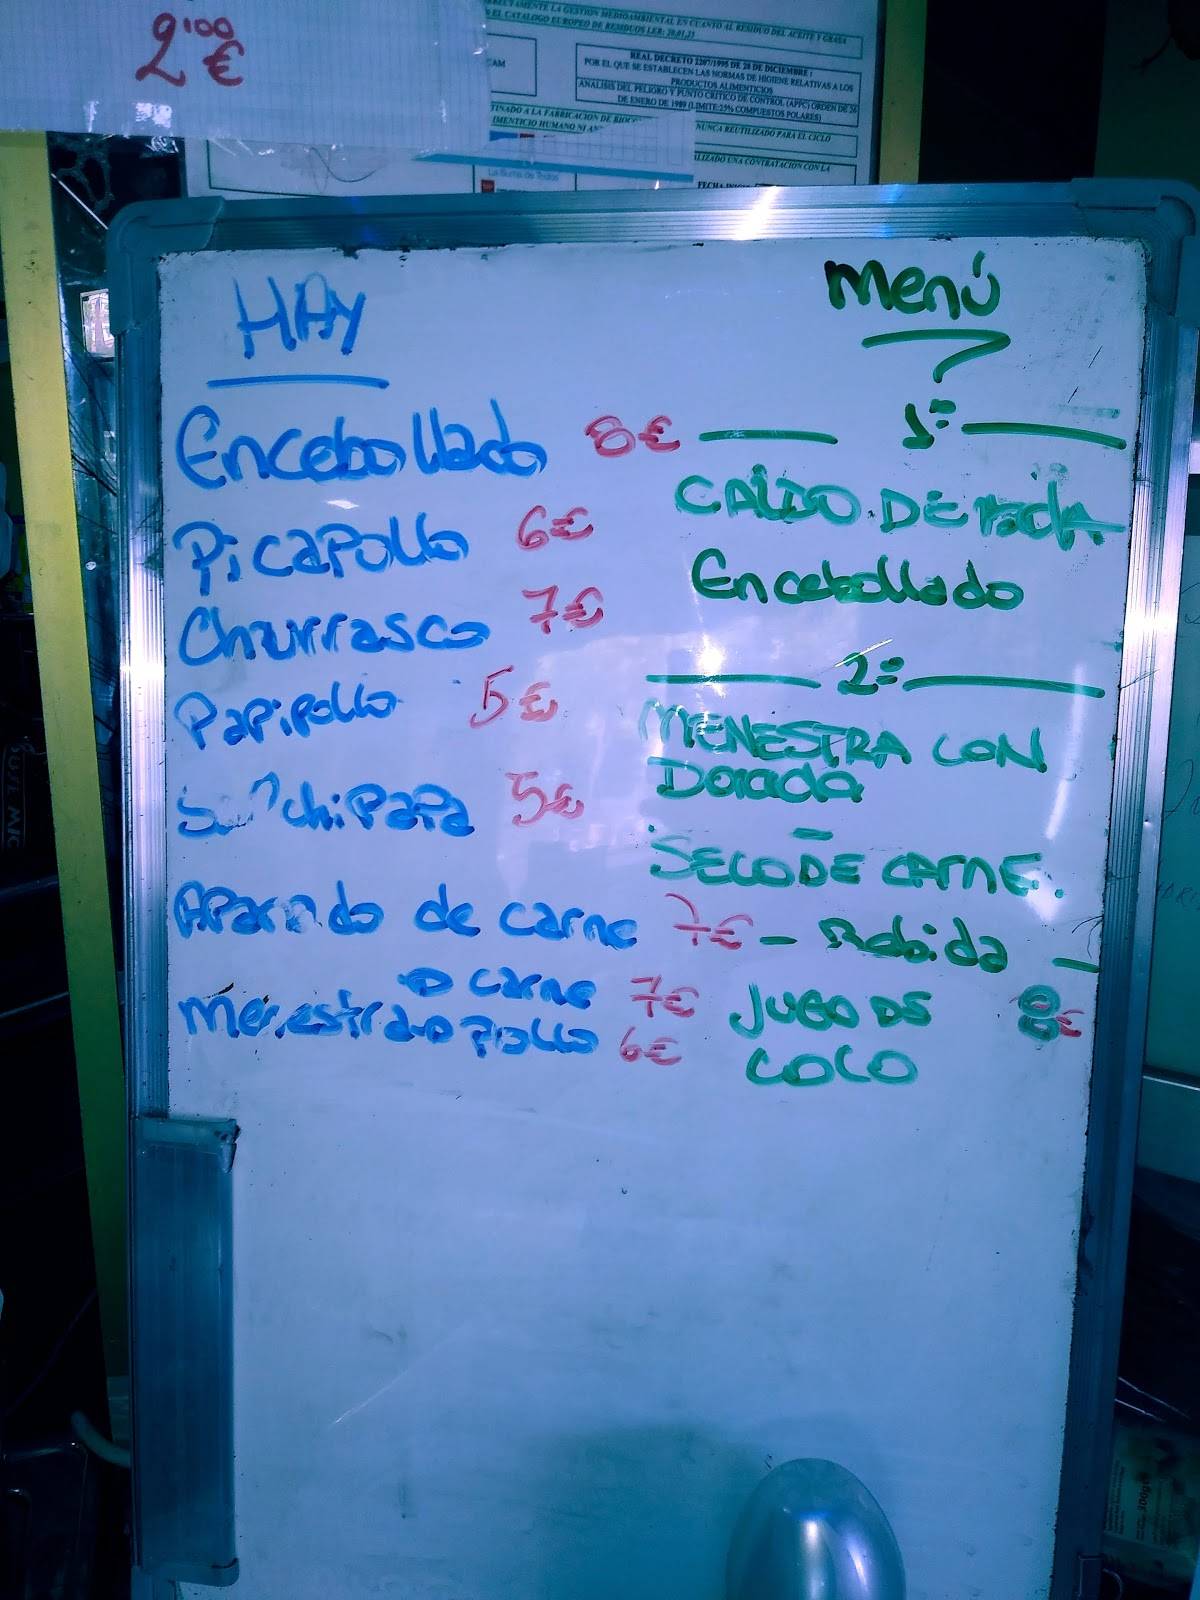 2'00 €
CORRECTAMENTE LA GESTION MEDIOAMBIENTAL EN CUANTO AL RESIDUO DEL ACEITE Y GRASA
EL CATALOGO EUROPEO DE RESIDUOS LER: 20,01,25
CAM
REAL DECRETO 2207/1995 DE 28 DE DICIEMBRE :
POR EL QUE SE ESTABLECEN LAS NORMAS DE HIGIENE RELATIVAS A LOS
PRODUCTOS ALIMENTICIOS
ANALISIS DEL PELIGRO Y PUNTO CRITICO DE CONTROL (APPC) ORDEN DE 26
DE ENERO DE 1989 (LIMITE:25% COMPUESTOS POLARES)
TINADO A LA FABRICACION DE
NUNCA REUTILIZADO PARA EL CICLO
IMENTICIO HUMANO NI
LIZADO UNA CONTRATACION CON LA
La Suma de Todos
HAY
Encebollado 8€
Picapollo 6€
Churrasco 7€
Papipollo 5€
5€
Aparado de carne 7€
carne 7€
Menestra pollo 6€
Menú
1º
CALDO DE
Encebollado
2º
MENESTRA CON
Dorada
SECO DE CARNE.
- Bebida -
JUGO DE 8€
COCO